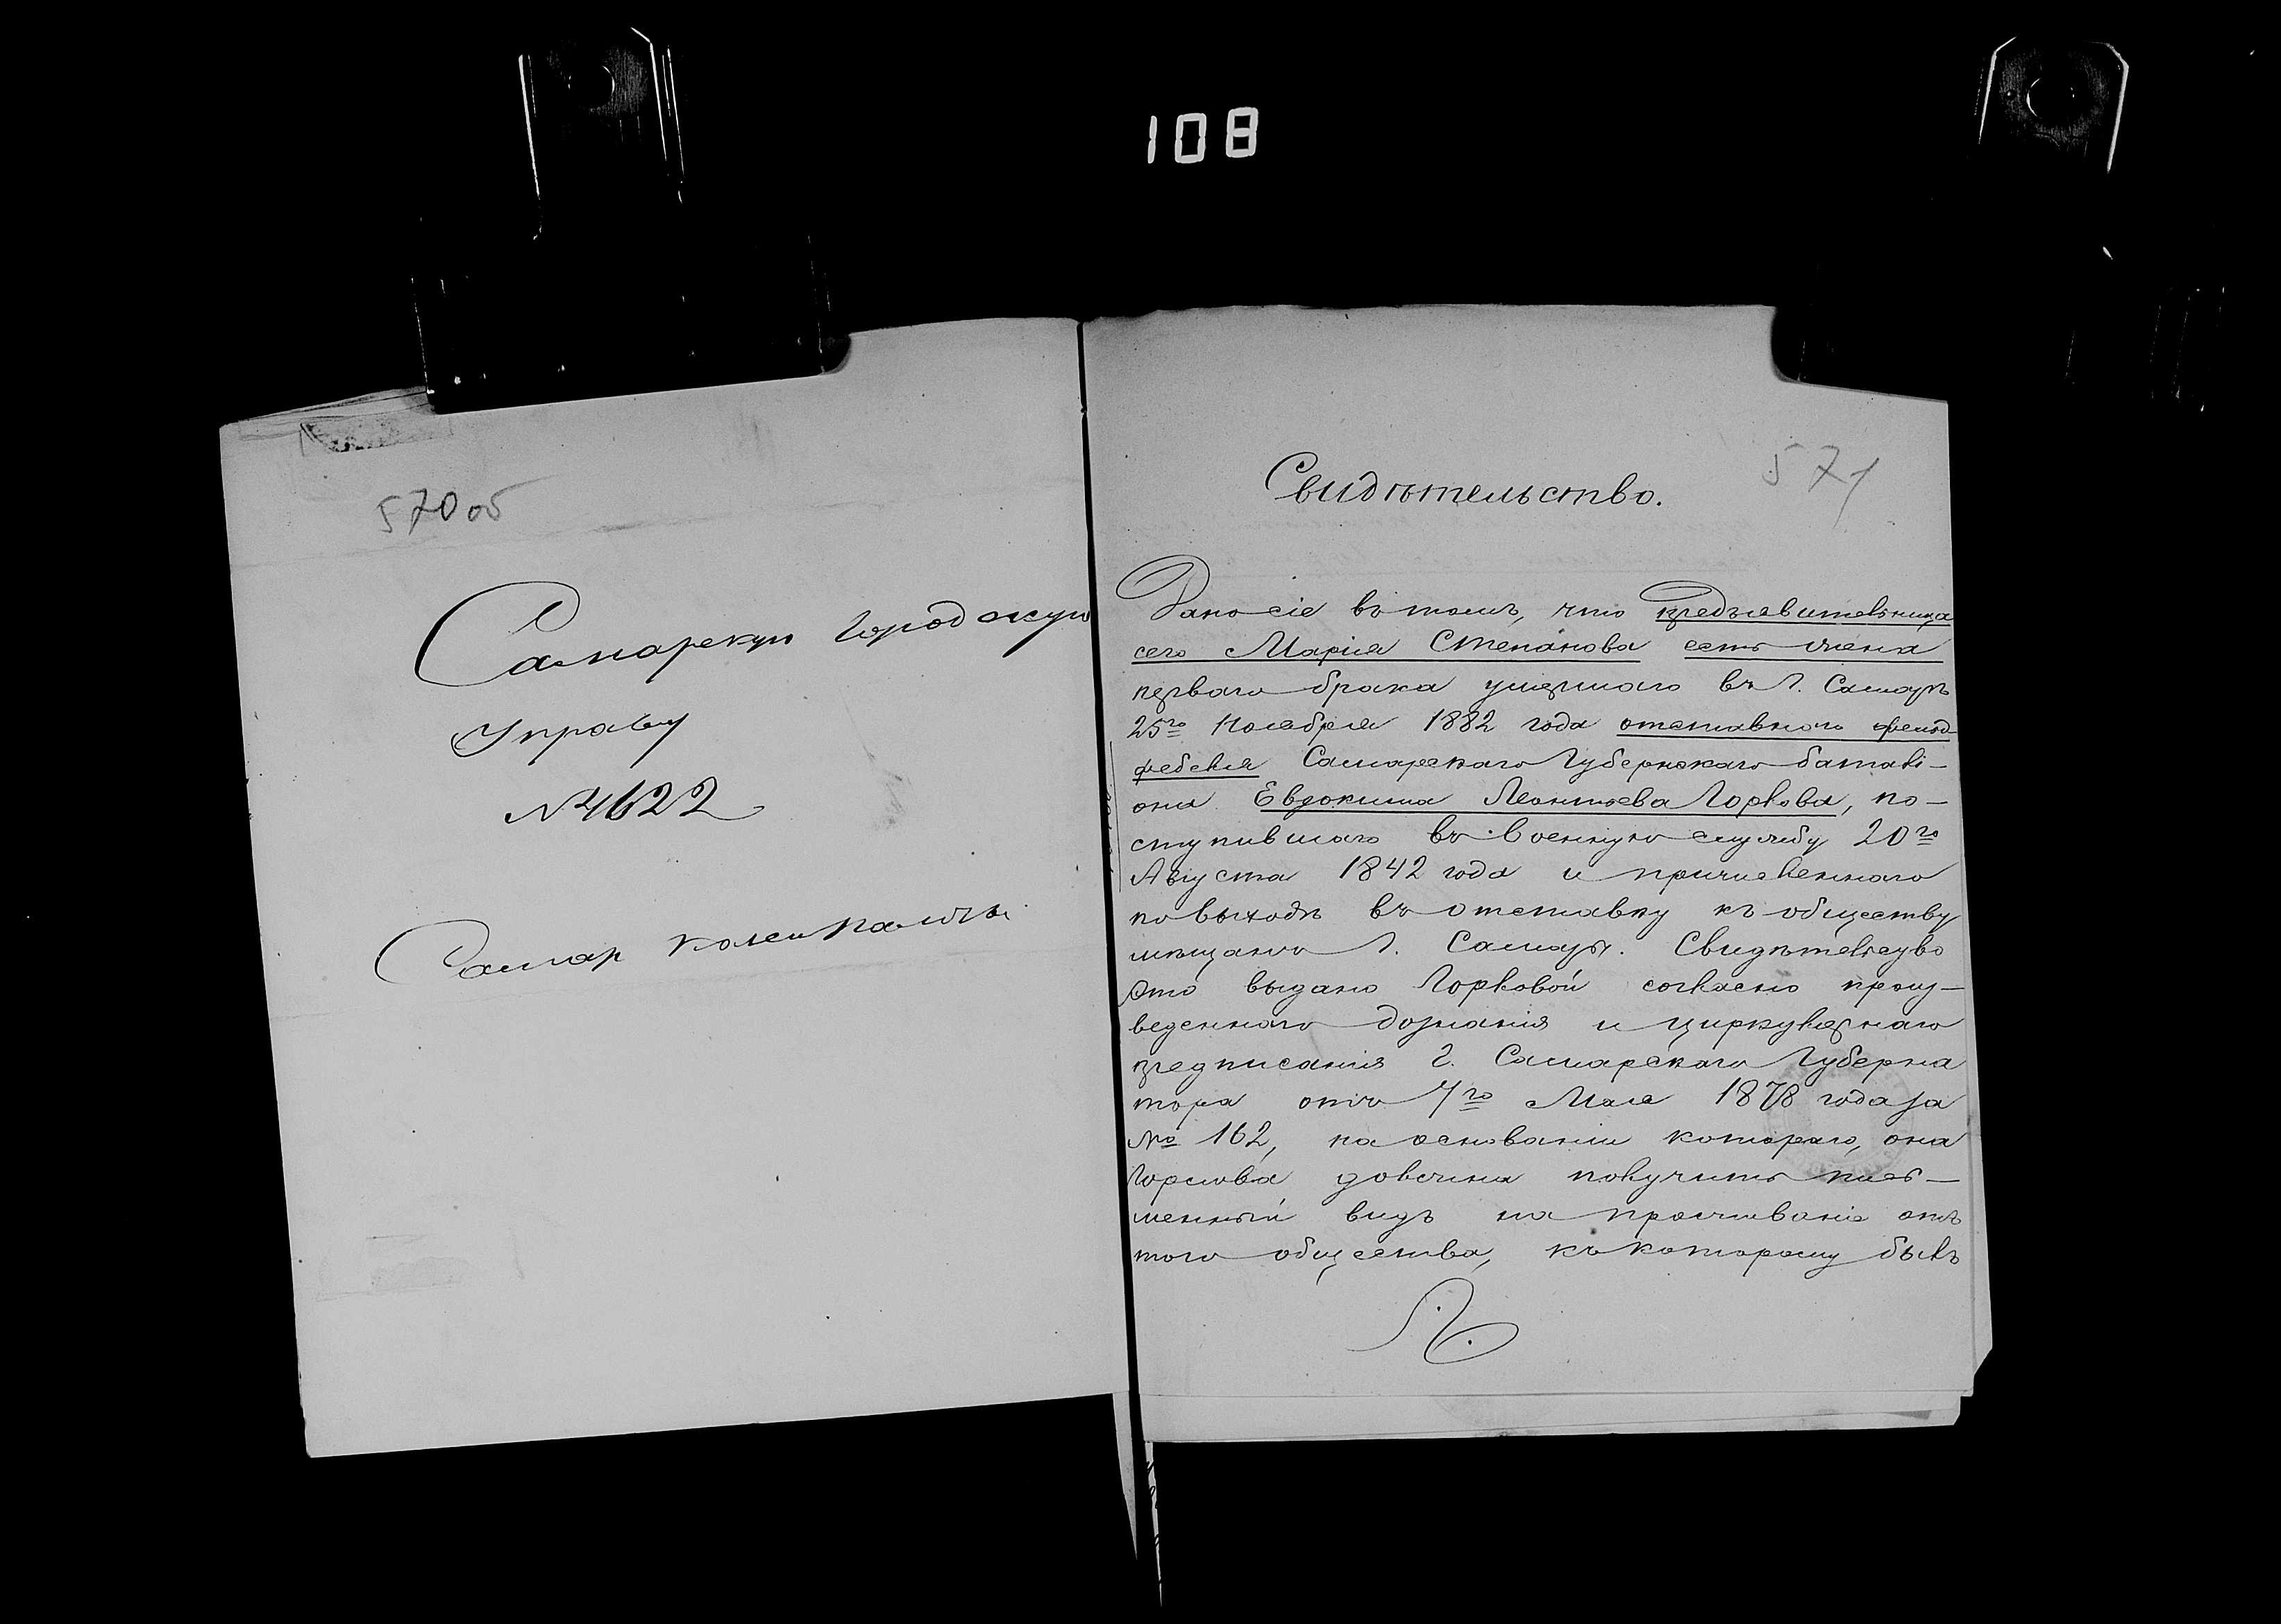 108
570 об
Самарскую Городскую
Управу
№ 4622
Самар
571
Свидѣтельство.
Дано сіе въ томъ, что предъявительница
сего Марія Степанова есть жена
перваго брака умершаго въ г. Самарѣ
25го Ноября 1882 года отставного фельд-
фебеля Самарскаго Губернскаго баталі-
она Евдокима Леонтьева Горлова, по-
ступившаго въ военную службу 20го
Августа 1842 года и причисленнаго
по выходѣ въ отставку къ обществу
мѣщанъ г. Самары. Свидѣтельство
это выдано Горловой согласно произ-
веденнаго дознанія и циркулярнаго
предписанія г. Самарскаго Губерна
тора отъ 7го Мая 1878 года за
№ 162, на основаніи котораго, она
Горлова должна получить пись-
менный видъ на проживаніе отъ
того общества, къ которому былъ